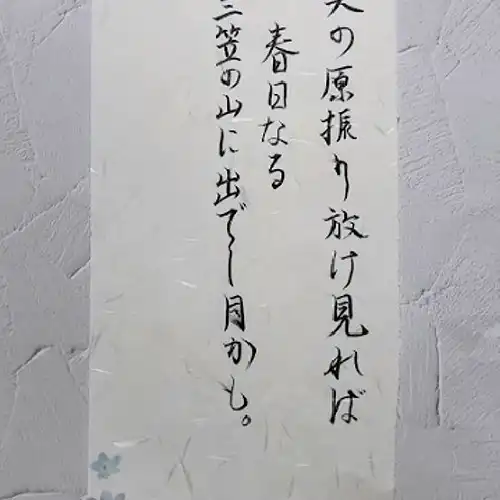 天の原振り放け見れば
春日なる
三笠の山に出でし月かも。